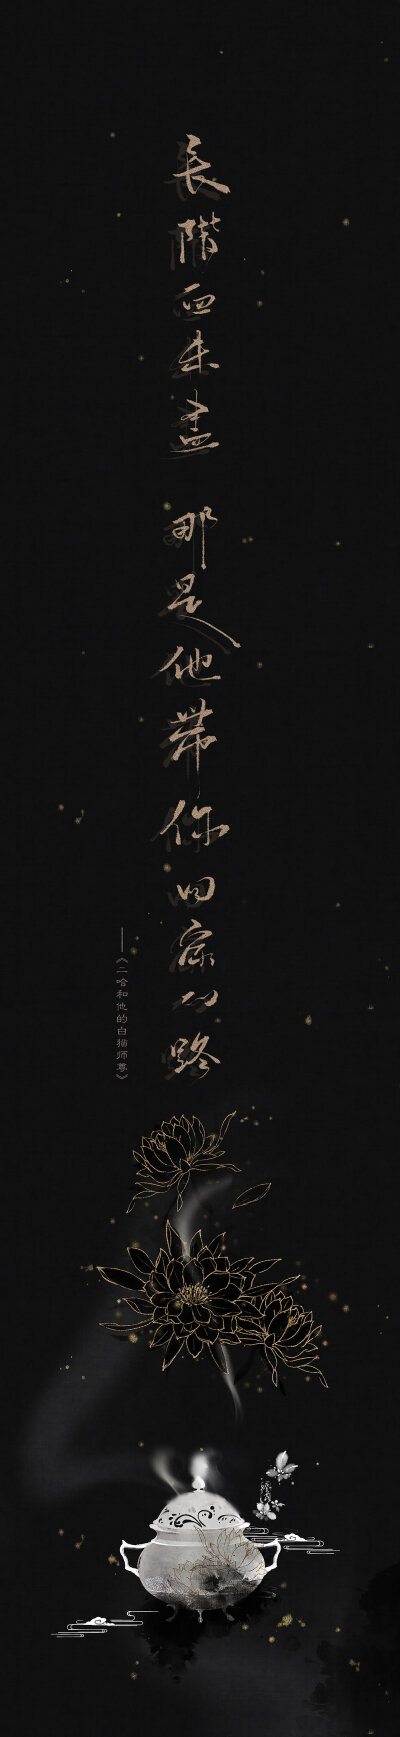 長階血未盡 那是他带你回家的路
——《二哈和他的白猫师尊》